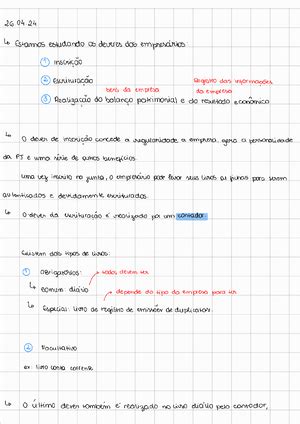 26.04.24
↳ Estamos estudando os deveres dos empresários:
① Inscrição
② Escrituração
Registro das informações da empresa
bens da empresa
③ Realização do balanço patrimonial e do resultado econômico
↳ O dever de inscrição concede a regularidade a empresa, gera a personalidade
da PJ e uma série de outros benefícios.
Uma vez inscrito na junta, o empresário pode levar seus livros ou fichas para serem
autenticados e devidamente escriturados.
↳ O dever da escrituração é realizado por um contador.
Existem dois tipos de livros:
① Obrigatórios:
→ todos devem ter
↳ comum: diário
→ depende do tipo da empresa para ter
↳ Especiais: livro de registro de emissões de duplicatas.
② Facultativo
ex: livro conta corrente
↳ O último dever também é realizado no livro diário pelo contador,